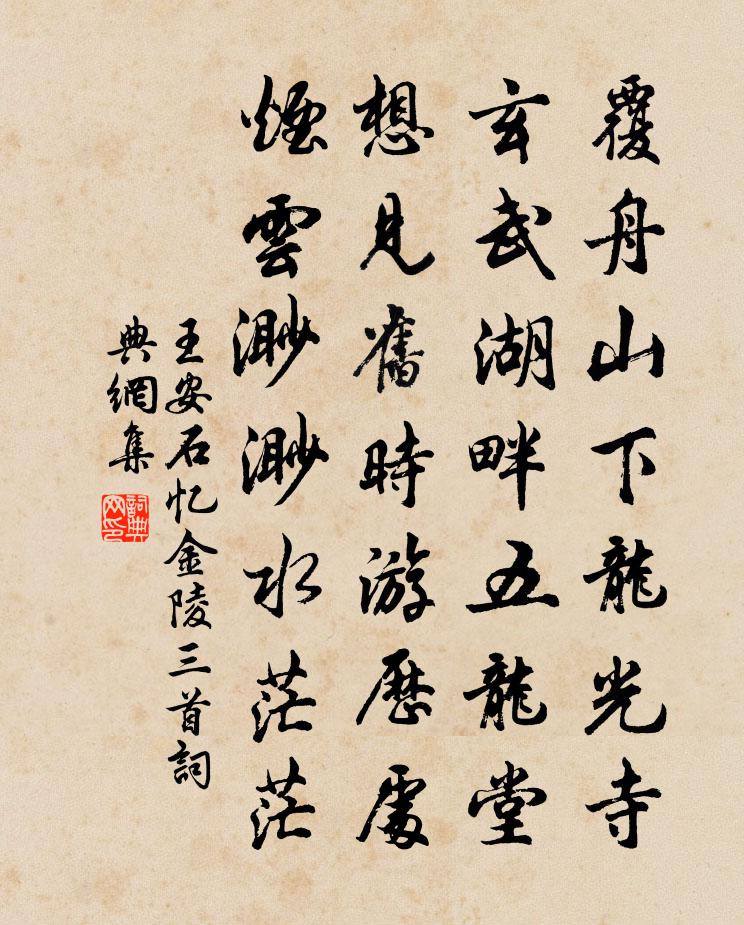 覆舟山下龍光寺
玄武湖畔五龍堂
想見舊時游歷處
煙雲渺渺水茫茫
王安石忆金陵三首詞
典網集
詞典網印